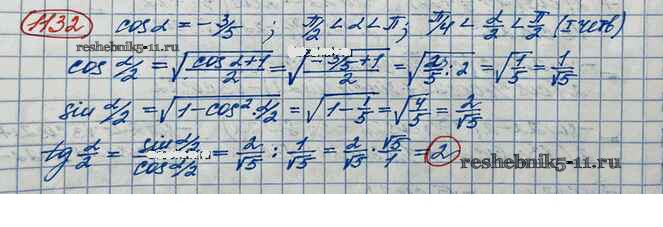 1132 cos α = - 3/5 ; π/2 < α < π; π/4 < α/2 < π/2 (I четв)
reshebnik5-11.ru reshebnik5-11.ru
cos α/2 = √((cos α + 1)/2) = √((-3/5 + 1)/2) = √(2/5 : 2) = √(1/5) = 1/√5
sin α/2 = √(1 - cos² α/2) = √(1 - 1/5) = √(4/5) = 2/√5
tg α/2 = (sin α/2)/(cos α/2) = 2/√5 : 1/√5 = 2/√5 · √5/1 = 2
reshebnik5-11.ru reshebnik5-11.ru